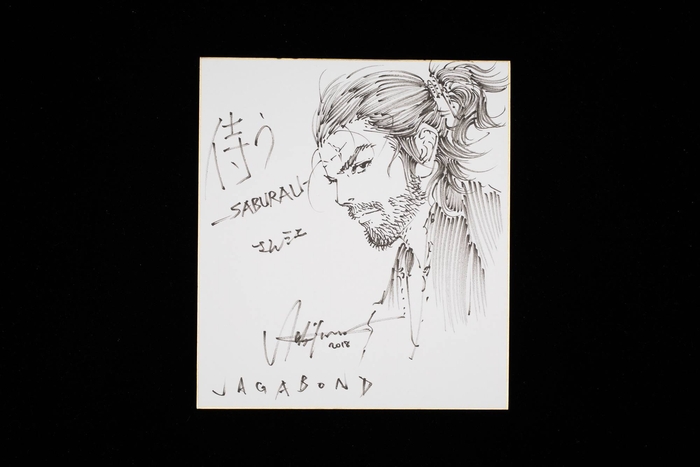 侍う
-SABURAU-
さんさえ
2018
VAGABOND